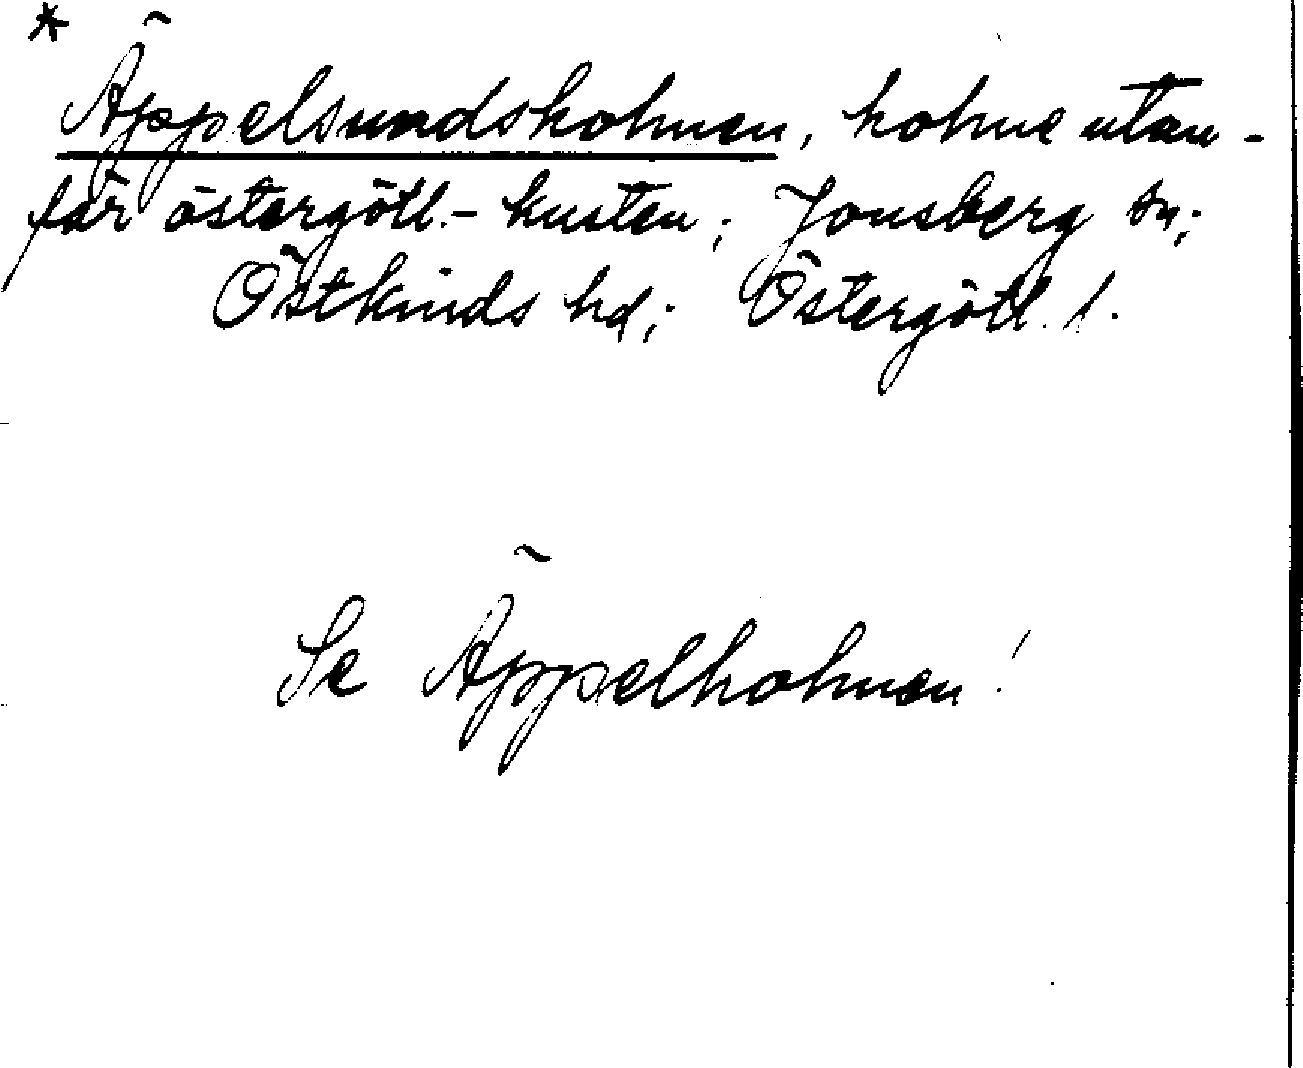 * Äppelsundsholmen, holme utan-
för östergötl.- kusten; Jonsberg sn;
Östkinds hd; Östergötl. l.
Se Äppelholmen!